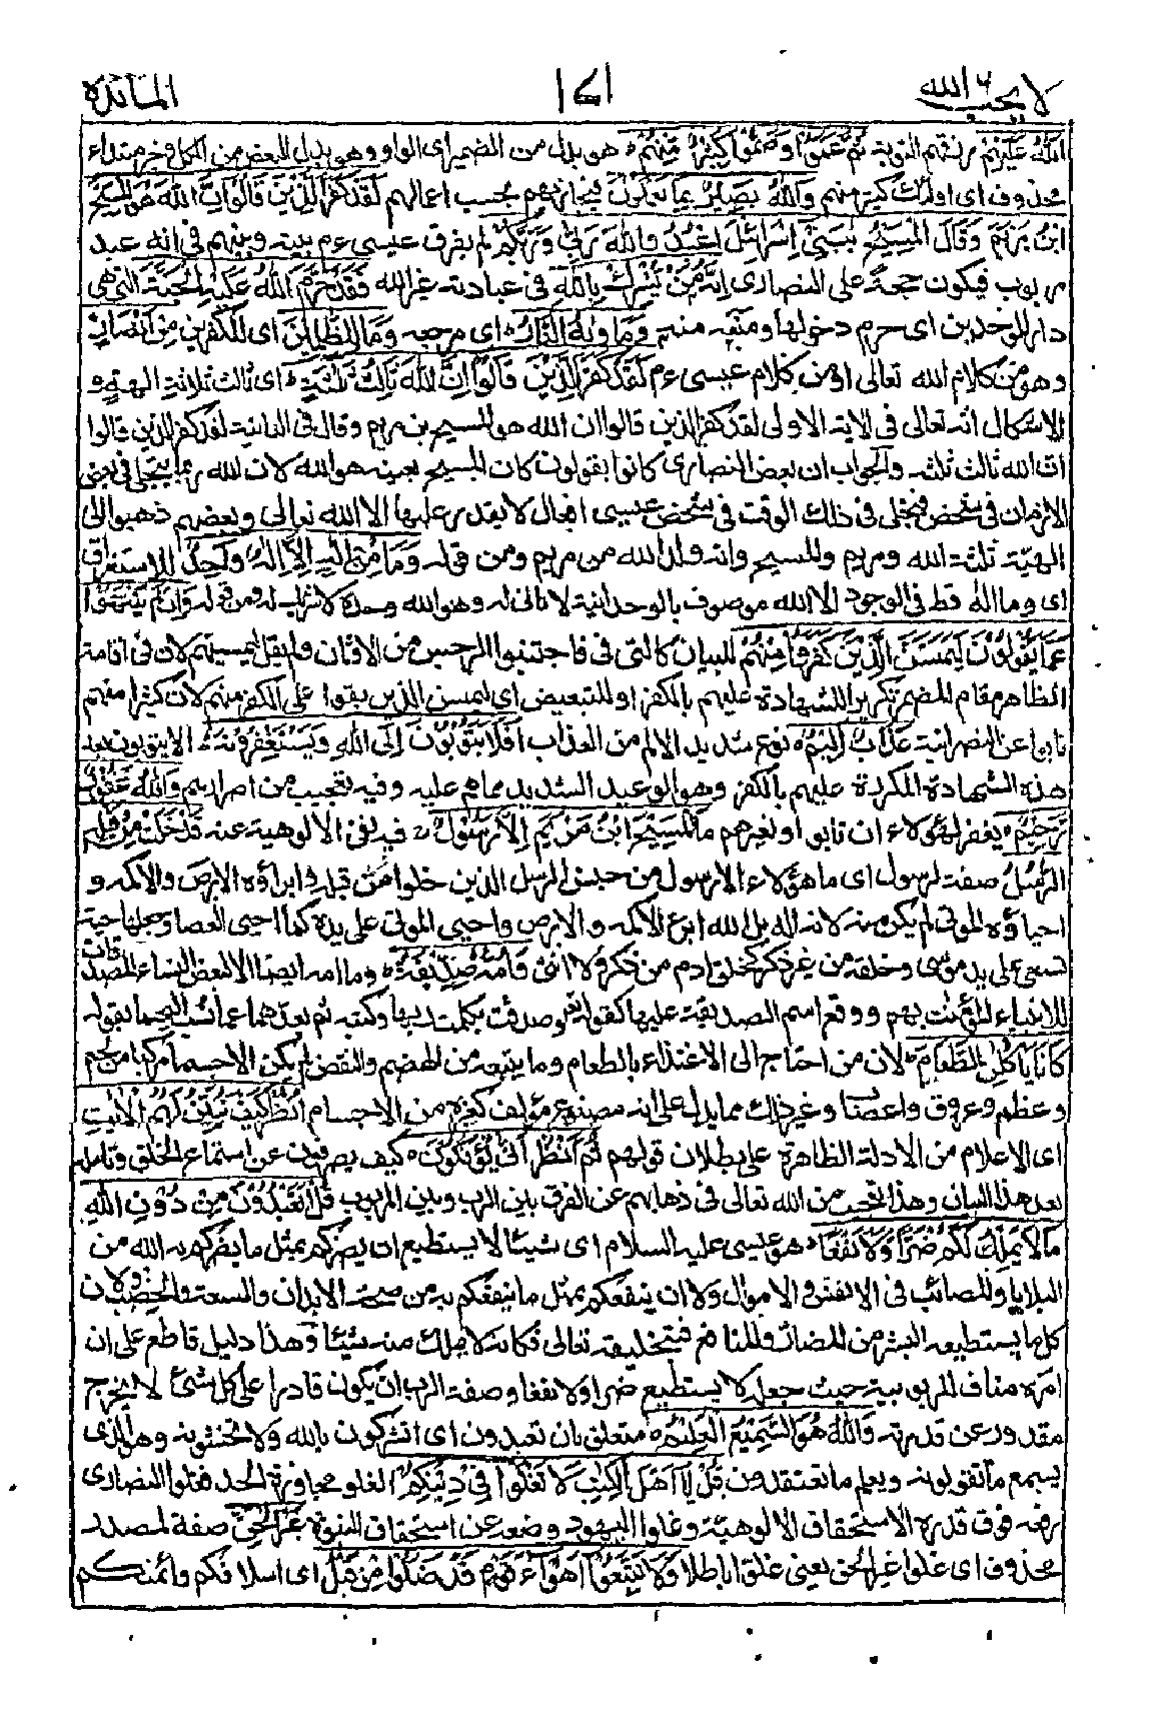 لا يحب الله ٦ ١٤١ المائدة
اللهُ عَلَيْهِمْ رزقهم التوبة ثُمَّ عَمُوا وَصَمُّوا كَثِيْرٌ مِّنْهُمْ هو بدل من الضمير اى الواو وهو بدل البعض من الكل او خبر مبتداء
محذوف اى اولئك كثير منهم وَاللهُ بَصِيْرٌ بِمَا يَعْمَلُوْنَ فيجازيهم بحسب اعمالهم لَقَدْ كَفَرَ الَّذِيْنَ قَالُوْا اِنَّ اللهَ هُوَ الْمَسِيْحُ
ابْنُ مَرْيَمَ وَقَالَ الْمَسِيْحُ يٰبَنِيْ اِسْرَائِيْلَ اعْبُدُوا اللهَ رَبِّيْ وَرَبَّكُمْ لم يفرق عيسى ءم بينه وبينهم فى انه عبد
مربوب فيكون حجة على النصارى اِنَّهُ مَنْ يُّشْرِكْ بِاللهِ فى عبادته غير الله فَقَدْ حَرَّمَ اللهُ عَلَيْهِ الْجَنَّةَ التى هى
دار الموحدين اى حرم دخولها ومنعه منه وَمَأْوٰىهُ النَّارُ اى مرجعه وَمَا لِلظّٰلِمِيْنَ اى للكفرين مِنْ اَنْصَارٍ
وهو من كلام الله تعالى او من كلام عيسى ءم لَقَدْ كَفَرَ الَّذِيْنَ قَالُوْا اِنَّ اللهَ ثَالِثُ ثَلٰثَةٍ اى ثالث ثلاثة الهة و
الاشكال انه تعالى فى الاية الاولى لقد كفر الذين قالوا ان الله هو المسيح بن مريم وقال فى الثانية لقد كفر الذين قالوا
ان الله ثالث ثلثه والجواب ان بعض النصارى كانوا يقولون كان المسيح بعينه هو الله لان الله ربما يتجلى فى بعض
الازمان فى شخص فتجلى فى ذلك الوقت فى شخص عيسى افعال لا يقدر عليها الا الله تعالى وبعضهم ذهبوا الى
الهيّة ثلثة الله ومريم والمسيح وانه ولد الله من مريم ومن قوله وَمَا مِنْ اِلٰهٍ اِلَّا اِلٰهٌ وَّاحِدٌ للاستغراق
اى وما اله قط فى الوجود الا الله موصوف بالوحدانية لا ثانى له وهو الله وحده لا شريك له ومن قوله وَاِنْ لَّمْ يَنْتَهُوْا
عَمَّا يَقُوْلُوْنَ لَيَمَسَّنَّ الَّذِيْنَ كَفَرُوْا مِنْهُمْ للبيان كالتى فى فاجتنبوا الرجس من الاوثان ولم يقل ليمسنهم لان فى اقامة
الظاهر مقام المضمر تكرير الشهادة عليهم بالكفر او للتبعيض اى ليمسن الذين بقوا على الكفر منهم لان كثيرا منهم
تابوا عن النصرانية عَذَابٌ اَلِيْمٌ نوع شديد الالم من العذاب اَفَلَا يَتُوْبُوْنَ اِلَى اللهِ وَيَسْتَغْفِرُوْنَهُ الا يتوبون بعد
هذه الشهادة المكررة عليهم بالكفر وهو الوعيد الشديد مما هم عليه وفيه تعجيب من اصرارهم وَاللهُ غَفُوْرٌ
رَّحِيْمٌ يغفر لهؤلاء ان تابوا ولغيرهم مَا الْمَسِيْحُ ابْنُ مَرْيَمَ اِلَّا رَسُوْلٌ فيه نفى الالوهية عنه قَدْ خَلَتْ مِنْ قَبْلِهِ
الرُّسُلُ صفة لرسول اى ما هو الا رسول من جنس الرسل الذين خلوا من قبله وابراؤه الابرص والاكمه و
احياؤه الموتى لم يكن منه لانه اله بل الله ابرء الاكمه والابرص واحيى الموتى على يده كما احيى العصا وجعلها حية
تسعى على يد موسى وخلقه من غير ذكر كخلق ادم من غير ذكر ولا انثى وَاُمُّهُ صِدِّيْقَةٌ وما امه ايضا الا كبعض النساء المصدقات
للانبياء المؤمنات بهم ووقع اسم الصديقة عليها كقوله وصدقت بكلمات ربها وكتبه ثم بعدهما عما نسب اليهما بقوله
كَانَا يَأْكُلٰنِ الطَّعَامَ لان من احتاج الى الاغتذاء بالطعام وما يتبعه من الهضم والنقض لم يكن الا جسما مركبا من لحم
وعظم وعروق واعصاب وغير ذلك مما يدل على انه مصنوع مؤلف كغيره من الاجسام اُنْظُرْ كَيْفَ نُبَيِّنُ لَهُمُ الْاٰيٰتِ
اى الاعلام من الادلة الظاهرة على بطلان قولهم ثُمَّ انْظُرْ اَنّٰى يُؤْفَكُوْنَ كيف يصرفون عن استماع الحق وتامله
بعد هذا البيان وهذا تعجيب من الله تعالى فى ذهابهم عن الفرق بين الرب وبين المربوب قُلْ اَتَعْبُدُوْنَ مِنْ دُوْنِ اللهِ
مَا لَا يَمْلِكُ لَكُمْ ضَرًّا وَّلَا نَفْعًا هو عيسى عليه السلام اى شيئا لا يستطيع ان يضركم بمثل ما يضركم به الله من
البلايا والمصائب فى الانفس والاموال ولا ان ينفعكم بمثل ما ينفعكم به من صحة الابدان والسعة والخصب ولان
كل ما يستطيعه البشر من المضار والمنافع فبتخليقه تعالى فكانه لا يملك منه شيئا وهذا دليل قاطع على ان
امره مناف للربوبية حيث جعله لا يستطيع ضرا ولا نفعا وصفة الرب ان يكون قادرا على كل شئ لا يخرج
مقدور عن قدرته وَاللهُ هُوَ السَّمِيْعُ الْعَلِيْمُ متعلق بان تعبدون اى اتشركون بالله ولا تخشونه وهو الذى
يسمع ما تقولونه ويعلم ما تعتقدون قُلْ يٰاَهْلَ الْكِتٰبِ لَا تَغْلُوْا فِيْ دِيْنِكُمْ الغلو مجاوزة الحد فغلوا النصارى
رفعه فوق قدره الاستحقاق الالوهية وغلوا اليهود وضعه عن استحقاق النبوة غَيْرَ الْحَقِّ صفة لمصدر
محذوف اى غلوا غير الحق يعنى غلوا باطلا وَلَا تَتَّبِعُوْا اَهْوَاءَ قَوْمٍ قَدْ ضَلُّوْا مِنْ قَبْلُ اى اسلافكم وائمتكم